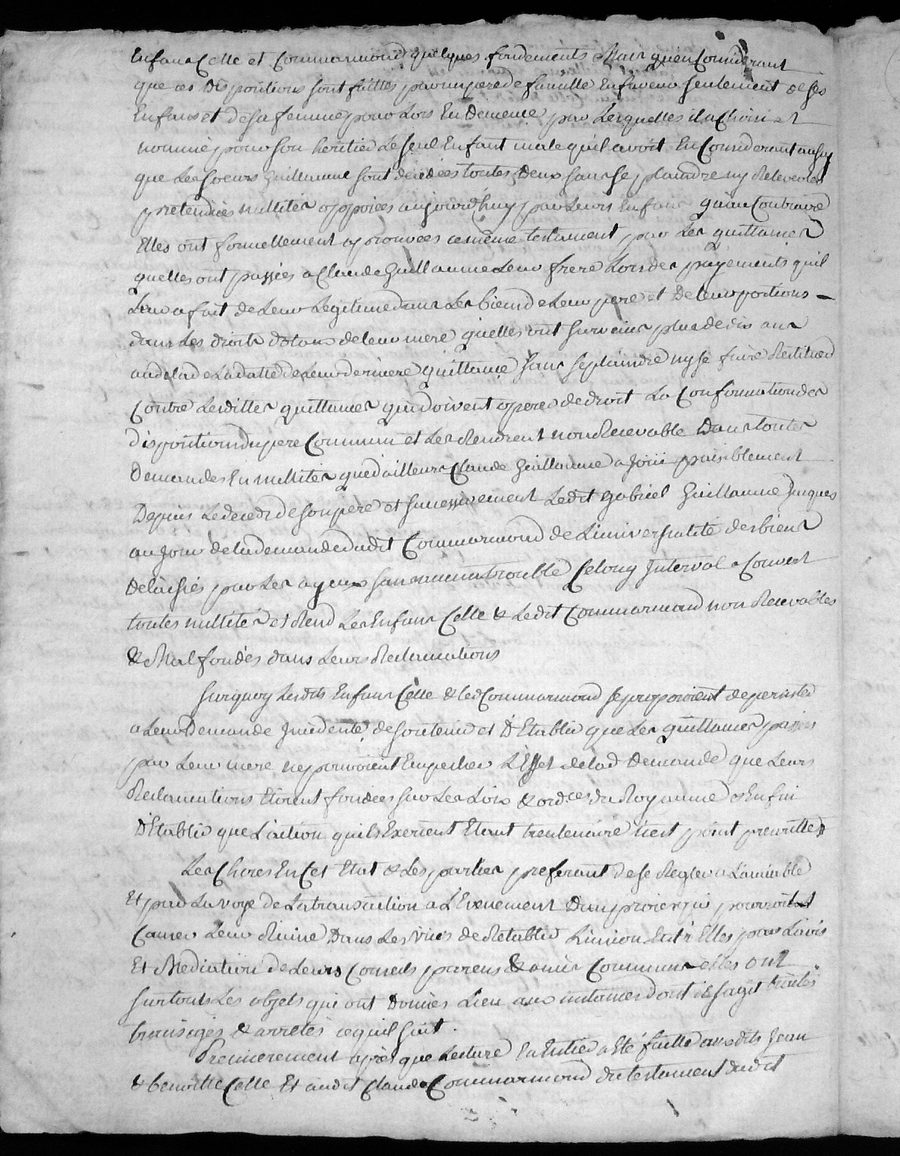 Enfans Celle et Commarmond quelques fondements Mais qu'en Considerant
que ces Dispositions sont faittes par un pere de famille En faveur seulement de ses
Enfans et de sa femme pour Lors En Demence par Lesquelles il a Choisi et
nommé pour son heritier Le seul Enfant male quil avoit En Considerant aussy
que Les soeurs Guillaume sont decedées toutes Deux sans se plaindre ny Relever les
pretendües nullités opposées aujourd'huy par Leurs Enfans qu'au Contraire
Elles ont formellement aprouvées ce même testament par Les quittances
quelles ont passées a Claude Guillaume Leur frere Lors des payements quil
Leur a fait de Leur Legitime dans Les biens de Leur pere et De leur portions
dans Les droits dotaux de leur mere quelles ont survecu plus de dix ans
au dela de La datte de Leur derniere quittance sans se plaindre ny se faire Restituer
Contre Lesdittes quittances qui doivent operer de droit La Confirmation des
dispositions du pere Commun et Les Rendrent non Recevable Dans toutes
Demandes En nullités que d'ailleurs Claude Guillaume a Joüi paisiblement
Depuis Le deces de son pere et successivement Ledit Gabriel Guillaume Jusques
au Jour de la demande dudit Commarmond de L'universalité des biens
delaissés par Les ayeux sans aucun trouble Ce long Interval a Couvert
toutes nullités et Rend Les Enfans Celle & Ledit Commarmond non Recevables
& Mal fondés dans Leurs Reclamations
Surquoy Lesdits Enfans Celle & led Commarmond se proposoient de persister
a Leur Demande Incidente, de soutenir et D'Etablir que Les quittances passées
par Leur mere ne pouvoient Empecher L'Effet de lad Demande que Leurs
Reclamations Etoient fondées sur Les Loix & ordces du Royaume et Enfin
D'Etablir que L'action qu'ils Exercent Etant trentenaire n'est point prescritte
Les Choses En Cet Etat & Les parties preferant de se Regler a L'amiable
Et par La voye de La transaction a L'Evenement D'un proces qui pourroit
Causer Leur Ruine Dans Les vües de Retablir L'union Entr'Elles par L'avis
Et Mediation de Leurs Conseils parens & amis Communs elles ont
sur touts Les objets qui ont donnés Lieu aux instances dont il s'agit traités
transigés & arretés ce qui suit.
Premierement après que Lecture En Entier a Eté faitte auxdits Jean
& Benoitte Celle Et audit Claude Commarmond du testament dudit